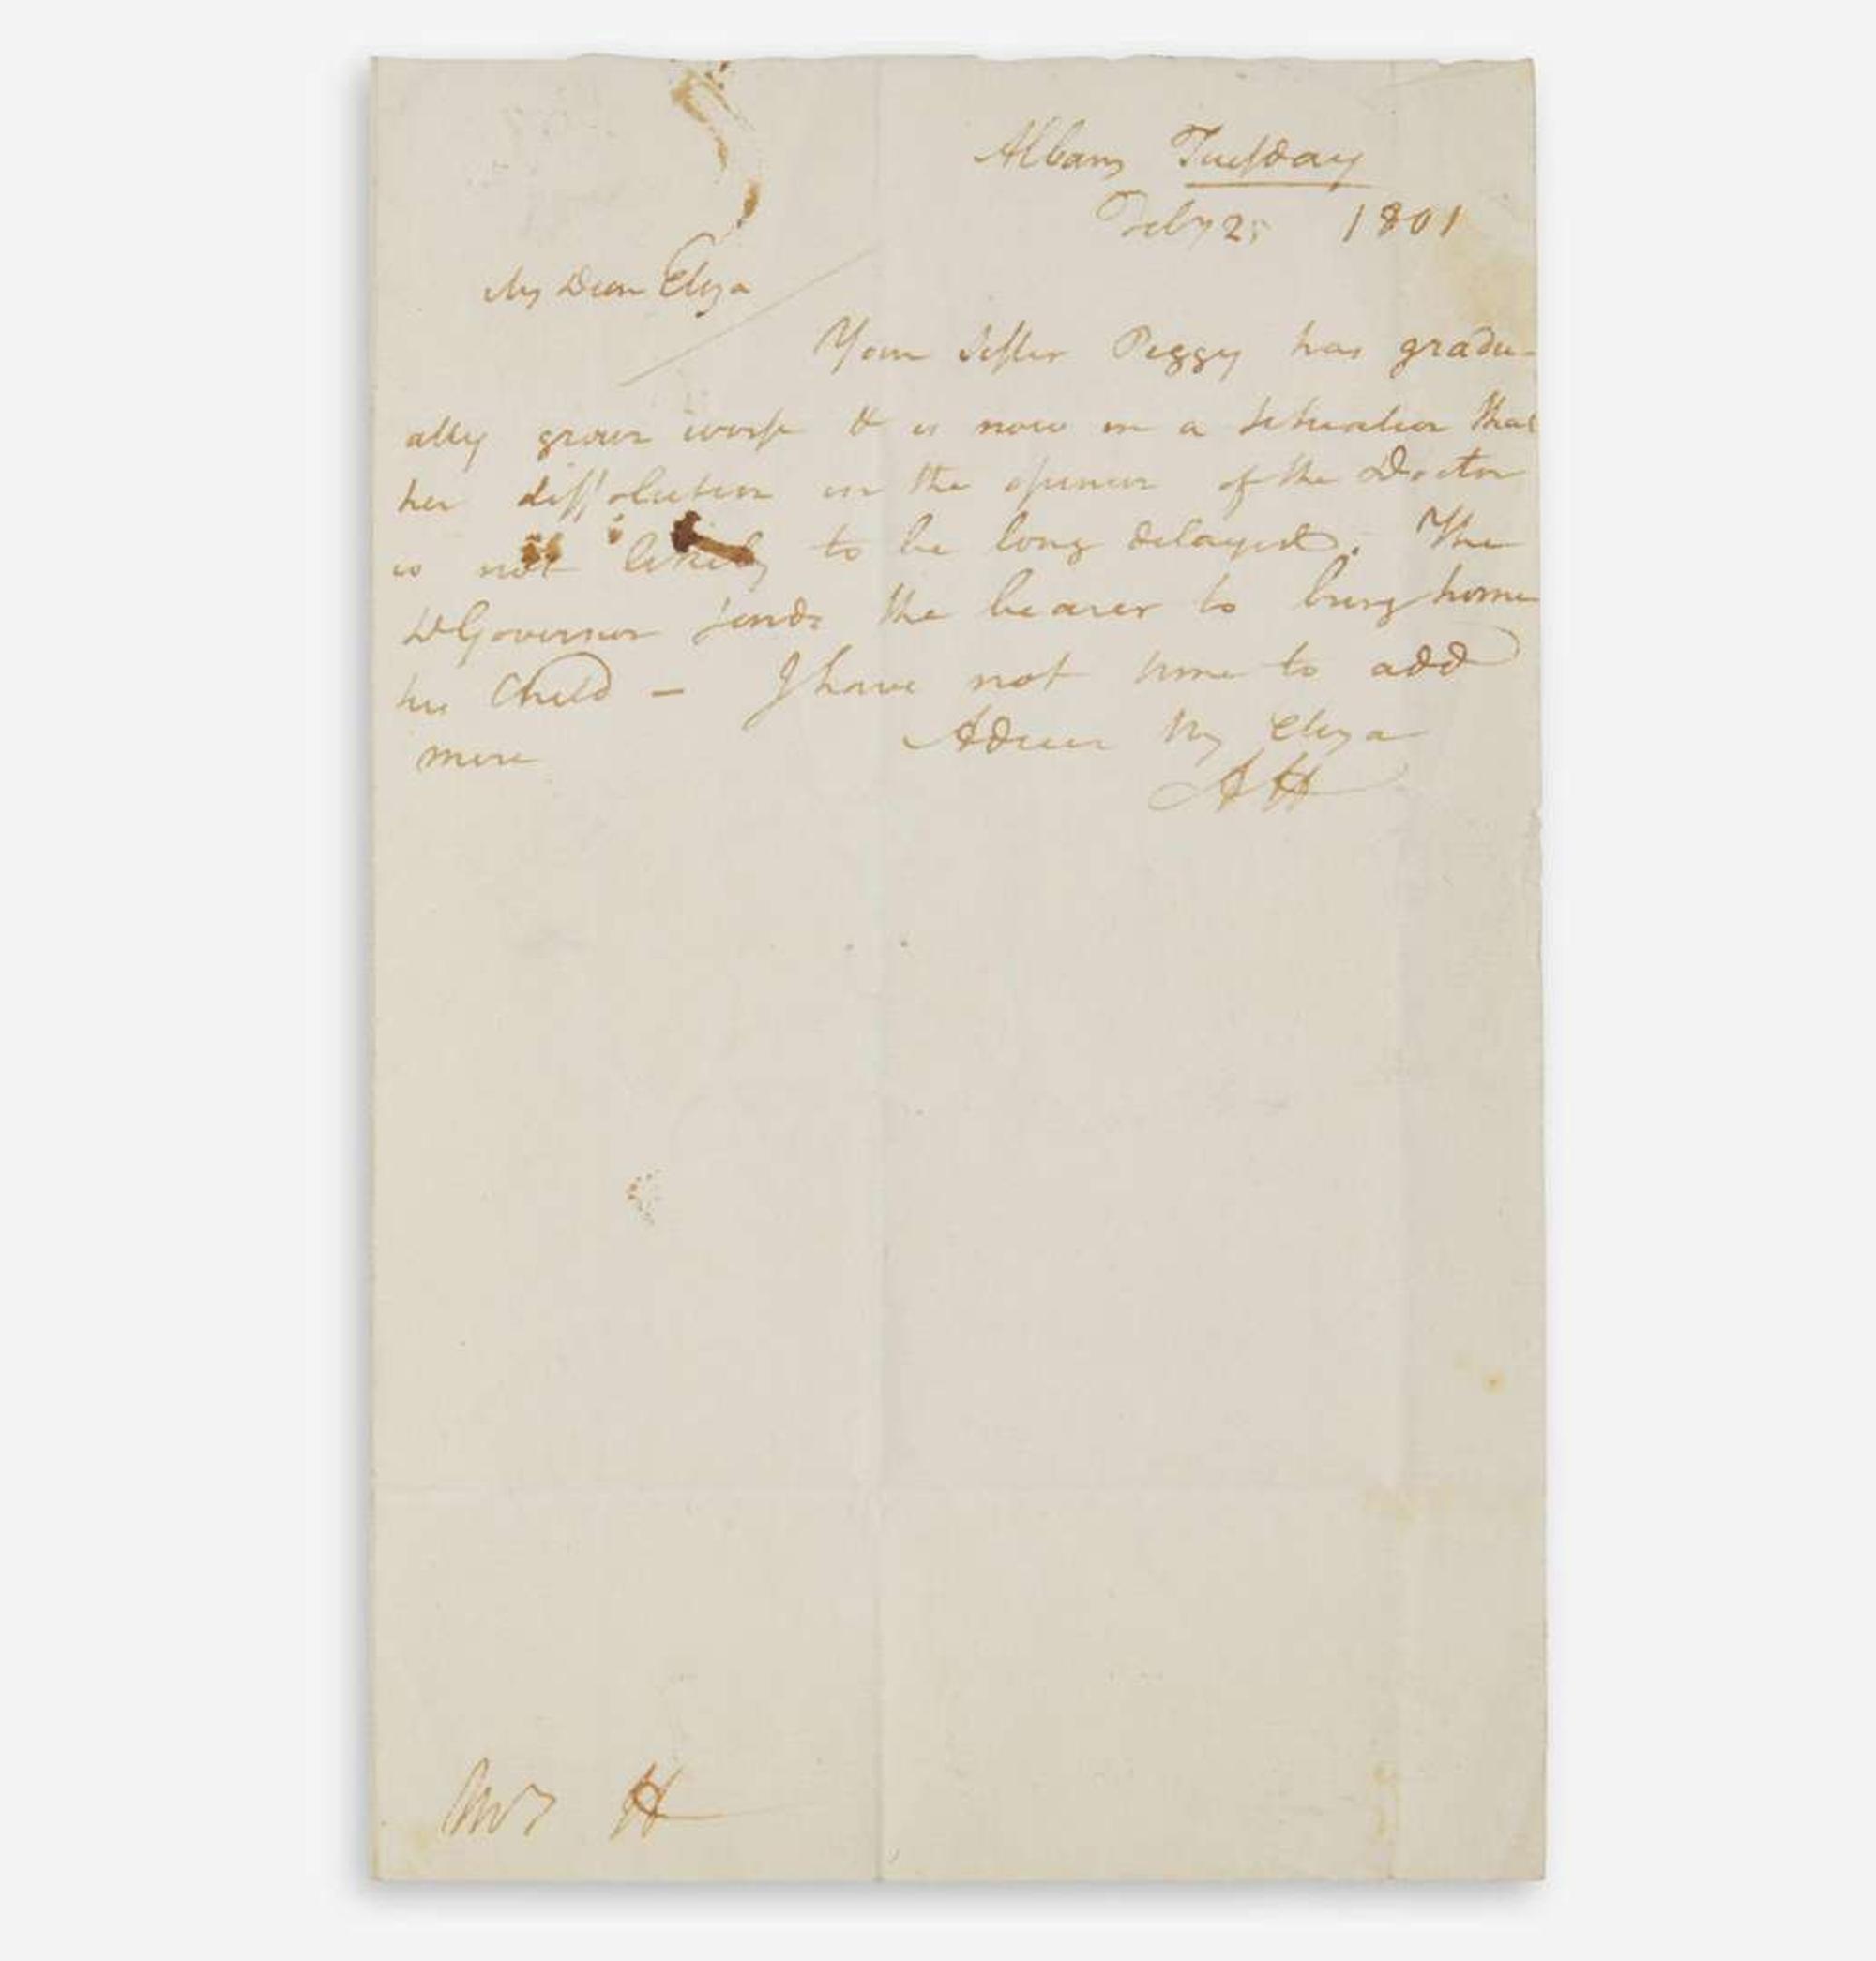 Albany Tuesday
Feby 25 1801
My Dear Eliza
Your Sister Peggy has gradu-
ally grown worse & is now in a situation that
her dissolution in the opinion of the Doctor
is not likely to be long delayed. The
Lt Governor sends the bearer to bring home
his Child — I have not time to add
more Adieu My Eliza
A H
Mrs H